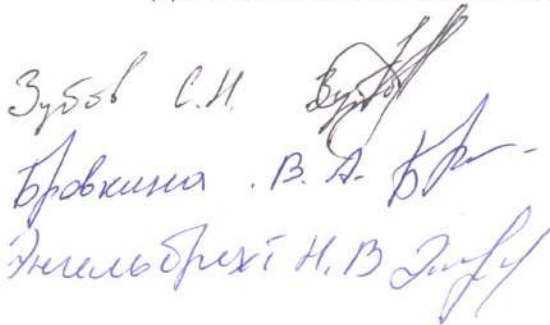 Зубов С.Н.
Бровкина В. А.
Энгельбрехт Н.В